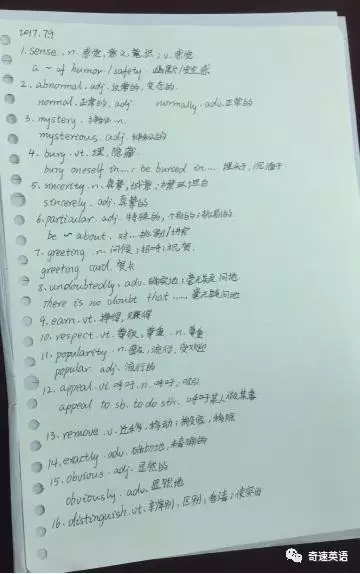 2017.7.9
1. sense. n. 感觉,意义,意识; v. 感觉
a ~ of humor / safety. 幽默/安全感
2. abnormal. adj. 反常的, 变态的.
normal. 正常的. adj normally. adv. 正常的
3. mystery. 神秘. n.
mysterious. adj. 神秘的
4. bury. vt. 埋, 隐藏
bury oneself in...; be buried in.... 埋头于,沉湎于
5. sincerity. n. 真挚,诚意;
sincerely. adj. 真挚的
6. particular. adj. 特殊的, 个别的;挑剔的
be ~ about. 对...挑剔/讲究
7. greeting. n. 问候; 招呼;祝贺.
greeting card. 贺卡
8. undoubtedly. adv. 确实地; 毫无疑问地
there is no doubt that .... 毫无疑问地
9. earn. vt. 挣得, 赚得
10. respect. vt. 尊敬, 尊重. n. 尊重
11. popularity. n. 流行, 受欢迎
popular. adj. 流行的
12. appeal. vi. 呼吁. n. 呼吁;
appeal to sb. to do sth. 呼吁某人做某事
13. remove. v. 迁移, 移动; 搬家, 移除
14. exactly. adv. 确切地, 精确的
15. obvious. adj. 显然的
obviously. adv. 显然地
16. distinguish. vt. 辨别, 区别, 看清; 使突出
奇速英语